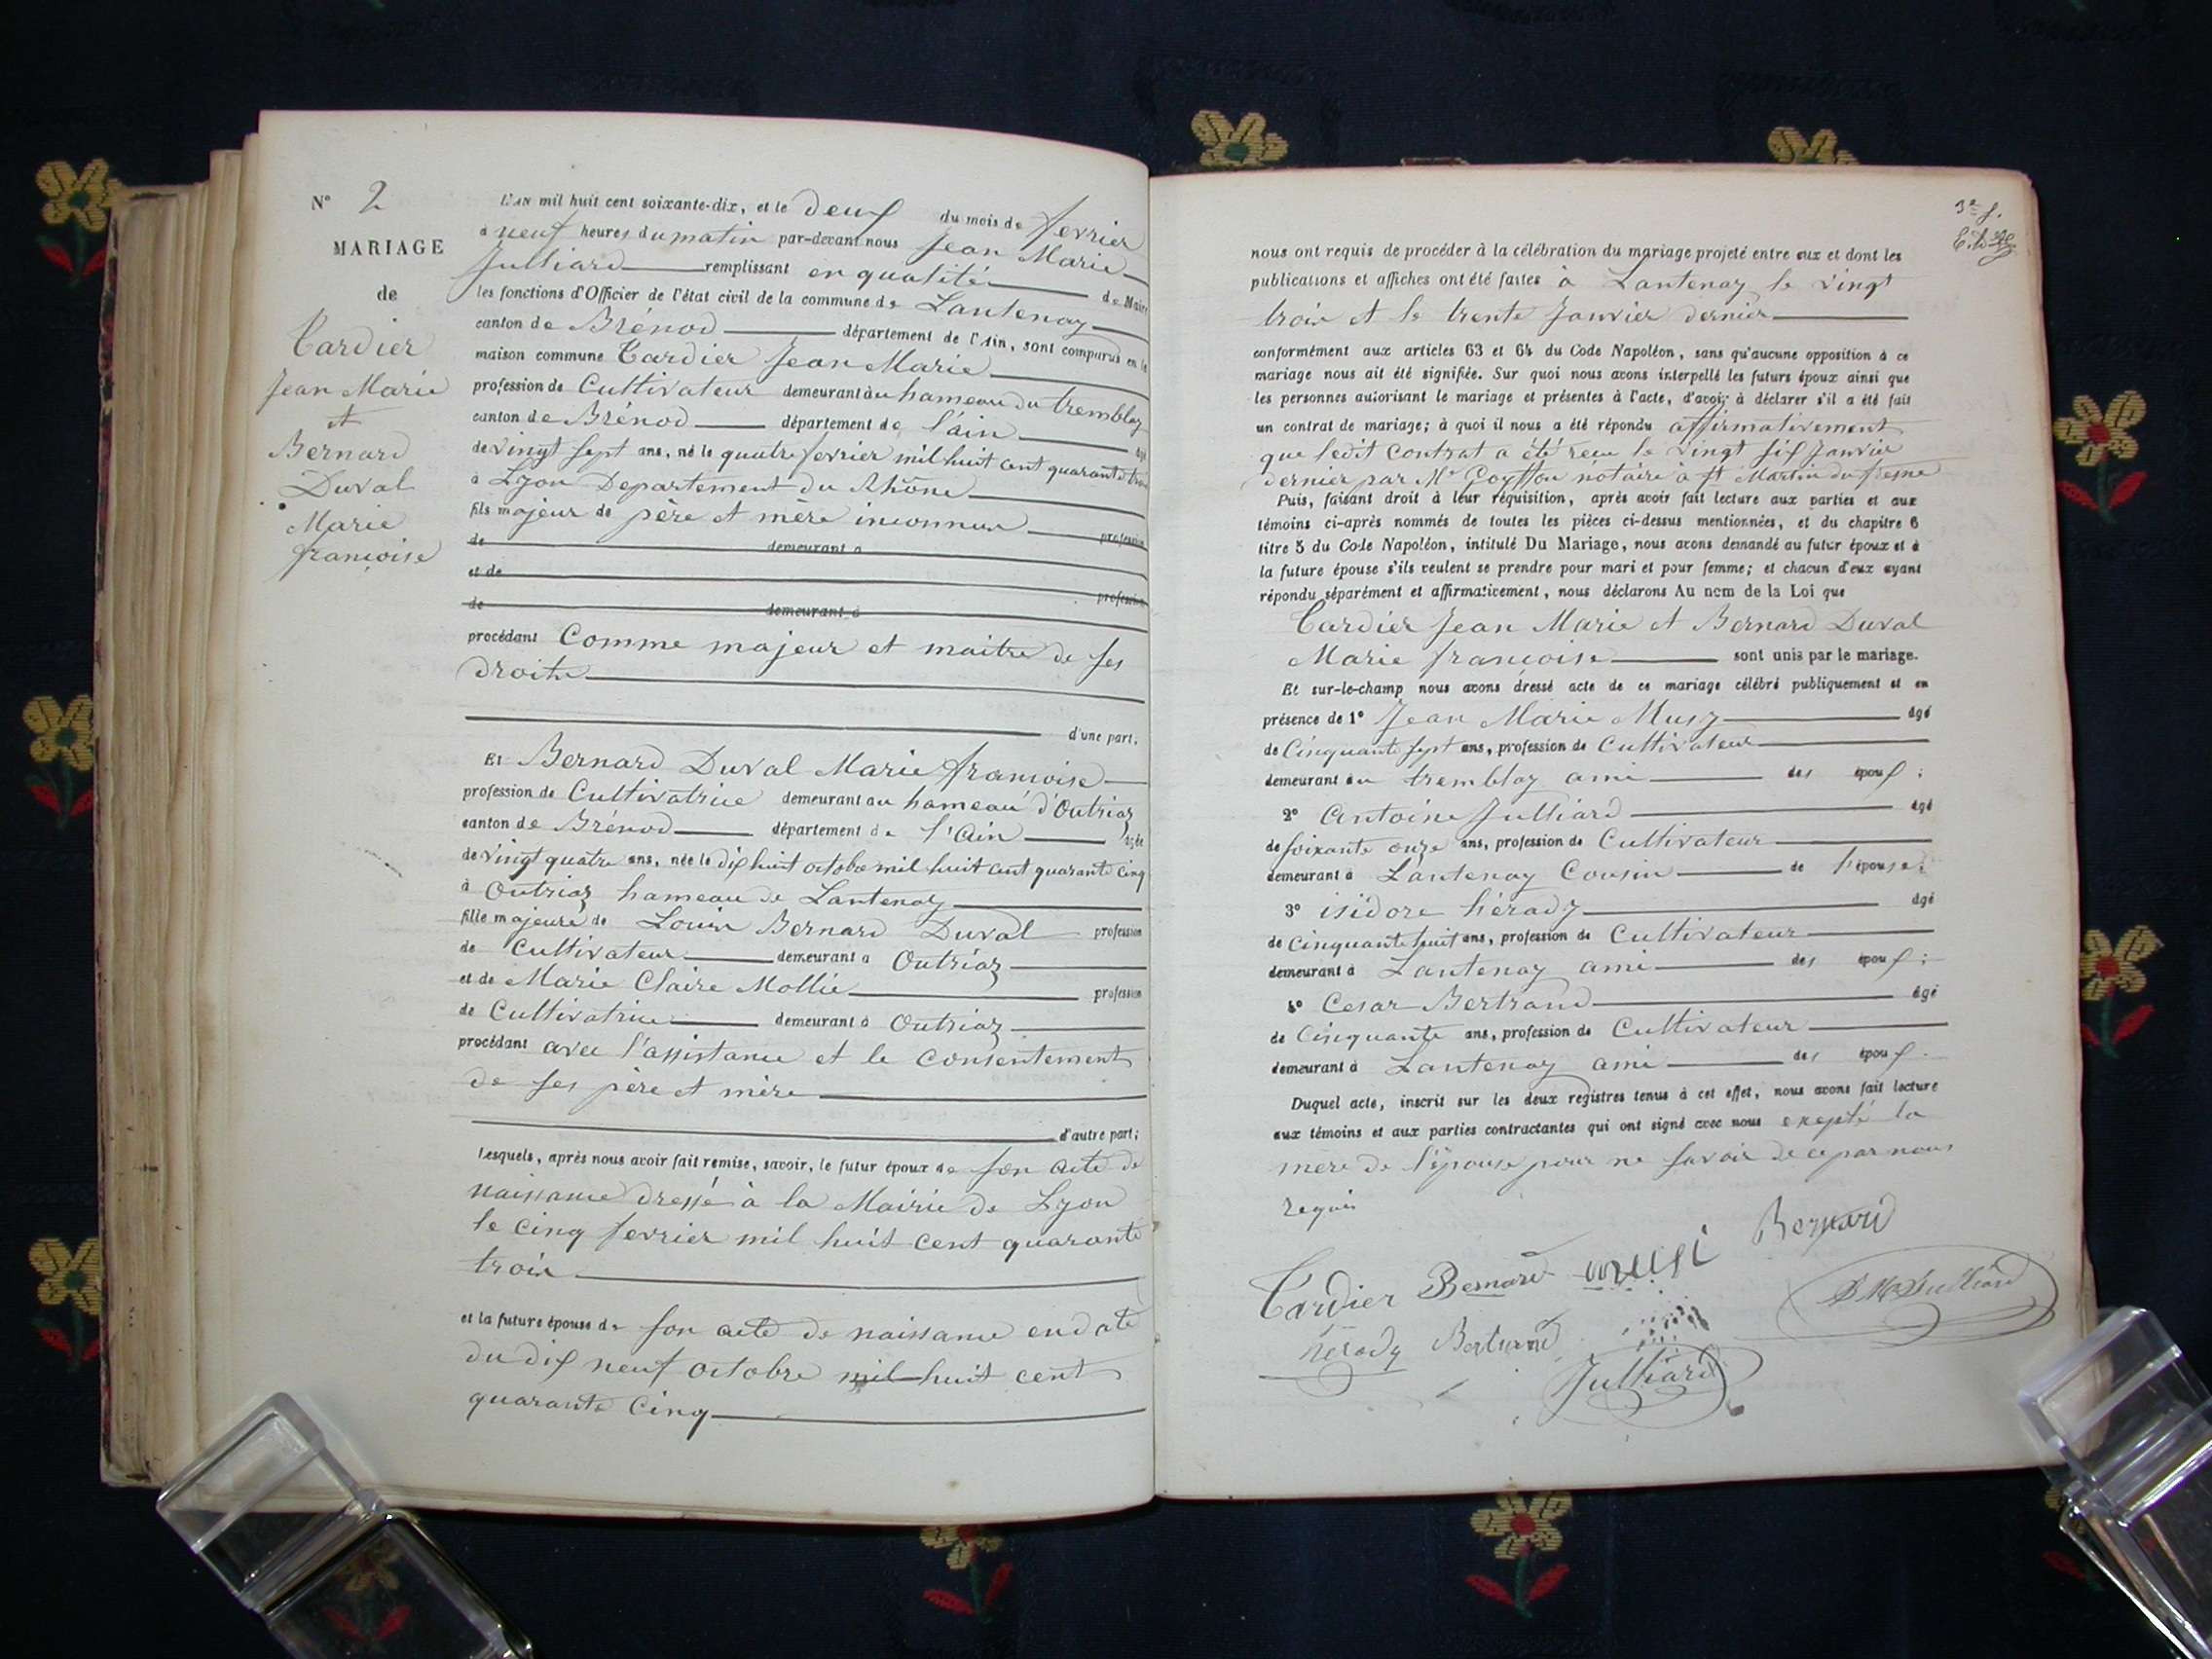 N° 2
MARIAGE
de
Tardier
Jean Marie
et
Bernard
Duval
Marie
françoise
L'AN mil huit cent soixante-dix, et le deux du mois de fevrier
à neuf heures du matin par-devant nous Jean Marie
Julliard remplissant en qualité de Maire
les fonctions d'Officier de l'état civil de la commune de Lantenay
canton de Brénod département de l'Ain, sont comparus en la
maison commune Tardier Jean Marie
profession de Cultivateur demeurant au hameau du tremblay
canton de Brénod département de l'ain âgé
de vingt sept ans, né le quatre fevrier mil huit cent quarante trois
à Lyon Departement du Rhône
fils majeur de père et mère inconnus profession
de demeurant à
et de profession
de demeurant à
procédant Comme majeur et maitre de ses
droits
d'une part.
Et Bernard Duval Marie françoise
profession de Cultivatrice demeurant au hameau d'Outriaz
canton de Brénod département de l'Ain âgée
de vingt quatre ans, née le dix huit octobre mil huit cent quarante cinq
à Outriaz hameau de Lantenay
fille majeure de Louis Bernard Duval profession
de Cultivateur demeurant à Outriaz
et de Marie Claire Mollie profession
de Cultivatrice demeurant à Outriaz
procédant avec l'assistance et le consentement
de ses père et mère
d'autre part;
Lesquels, après nous avoir fait remise, savoir, le futur époux de son acte de
naissance dressé à la Mairie de Lyon
le cinq fevrier mil huit cent quarante
trois
et la future épouse de son acte de naissance en date
du dix neuf octobre mil huit cent
quarante cinq
3e f.
nous ont requis de procéder à la célébration du mariage projeté entre eux et dont les
publications et affiches ont été faites à Lantenay le vingt
trois et le trente Janvier dernier
conformément aux articles 63 et 64 du Code Napoléon, sans qu'aucune opposition à ce
mariage nous ait été signifiée. Sur quoi nous avons interpellé les futurs époux ainsi que
les personnes autorisant le mariage et présentes à l'acte, d'avoir à déclarer s'il a été fait
un contrat de mariage; à quoi il nous a été répondu affirmativement
que ledit contrat a été recu le vingt six Janvier
dernier par Me Goyffon notaire à St Martin du fresne
Puis, faisant droit à leur réquisition, après avoir fait lecture aux parties et aux
témoins ci-après nommés de toutes les pièces ci-dessus mentionnées, et du chapitre 6
titre 5 du Code Napoléon, intitulé Du Mariage, nous avons demandé au futur époux et à
la future épouse s'ils veulent se prendre pour mari et pour femme; et chacun d'eux ayant
répondu séparément et affirmativement, nous déclarons Au nom de la Loi que
Tardier Jean Marie et Bernard Duval
Marie françoise sont unis par le mariage.
Et sur-le-champ nous avons dressé acte de ce mariage célébré publiquement et en
présence de 1° Jean Marie Musy âgé
de Cinquante sept ans, profession de Cultivateur
demeurant au tremblay ami des époux;
2° Antoine Julliard âgé
de soixante onze ans, profession de Cultivateur
demeurant à Lantenay Cousin de l'épouse;
3° isidore hérady âgé
de Cinquante huit ans, profession de Cultivateur
demeurant à Lantenay ami des époux;
4° Cesar Bertrand âgé
de Cinquante ans, profession de Cultivateur
demeurant à Lantenay ami des époux.
Duquel acte, inscrit sur les deux registres tenus à cet effet, nous avons fait lecture
aux témoins et aux parties contractantes qui ont signé avec nous excepté la
mère de l'épouse pour ne savoir de ce par nous
requis
Tardier Bernard musi Bernard
hérady Bertrand Julliard J M Julliard